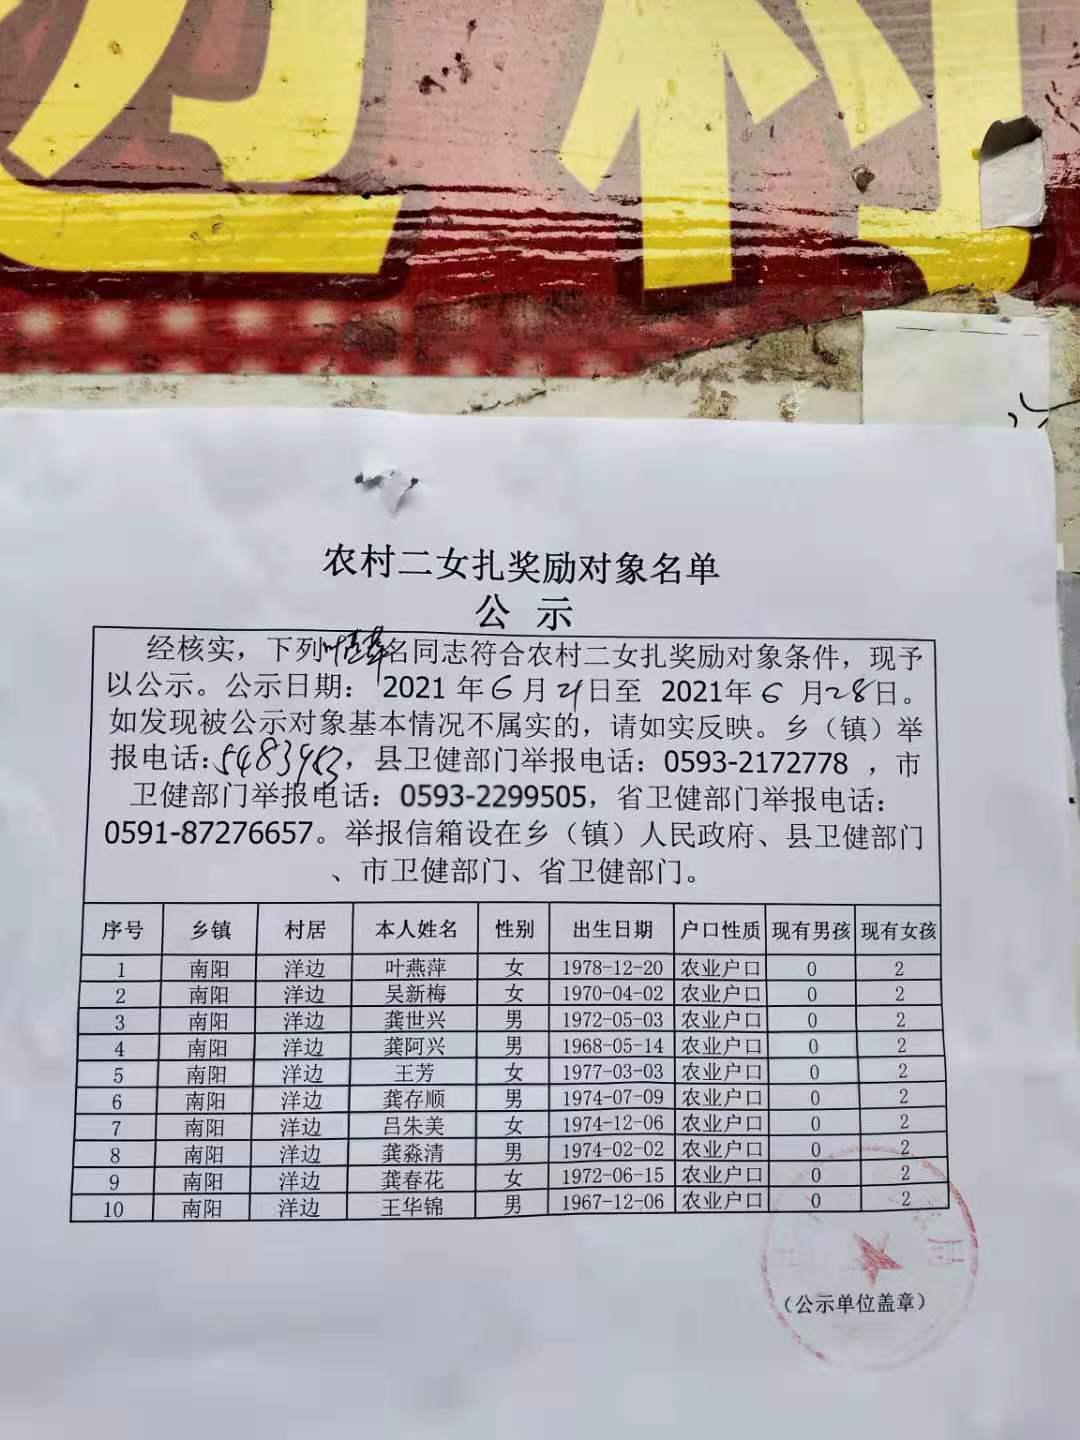 边村
农村二女扎奖励对象名单
公 示
经核实，下列 名同志符合农村二女扎奖励对象条件，现予
以公示。公示日期： 2021 年6月21日至 2021年6 月28日。
如发现被公示对象基本情况不属实的，请如实反映。乡（镇）举
报电话:5483983，县卫健部门举报电话：0593-2172778 ，市
卫健部门举报电话：0593-2299505，省卫健部门举报电话：
0591-87276657。举报信箱设在乡（镇）人民政府、县卫健部门
、市卫健部门、省卫健部门。
序号 乡镇 村居 本人姓名 性别 出生日期 户口性质 现有男孩 现有女孩
1 南阳 洋边 叶燕萍 女 1978-12-20 农业户口 0 2
2 南阳 洋边 吴新梅 女 1970-04-02 农业户口 0 2
3 南阳 洋边 龚世兴 男 1972-05-03 农业户口 0 2
4 南阳 洋边 龚阿兴 男 1968-05-14 农业户口 0 2
5 南阳 洋边 王芳 女 1977-03-03 农业户口 0 2
6 南阳 洋边 龚存顺 男 1974-07-09 农业户口 0 2
7 南阳 洋边 吕朱美 女 1974-12-06 农业户口 0 2
8 南阳 洋边 龚淼清 男 1974-02-02 农业户口 0 2
9 南阳 洋边 龚春花 女 1972-06-15 农业户口 0 2
10 南阳 洋边 王华锦 男 1967-12-06 农业户口 0 2
局
（公示单位盖章）